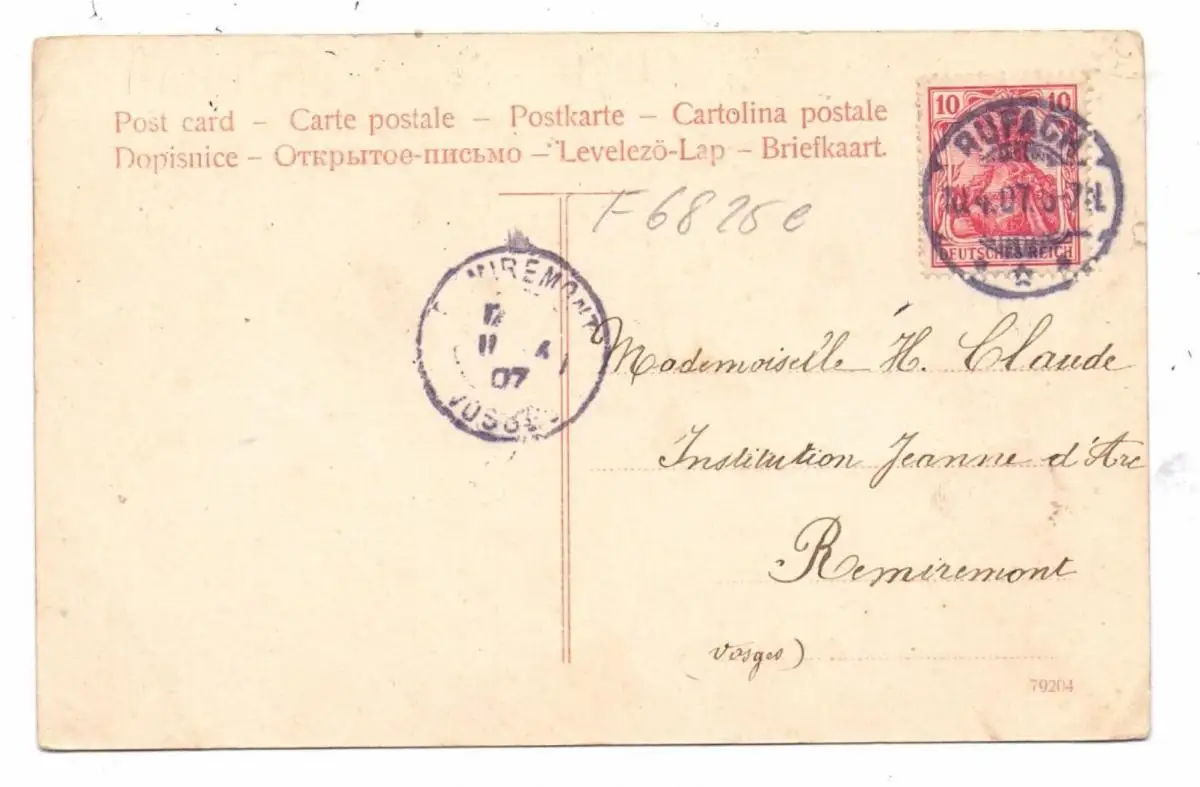 Post card – Carte postale – Postkarte – Cartolina postale
Dopisnice – Открытое-письмо – Levelező-Lap – Briefkaart.
10 10
DEUTSCHES REICH
RUFACH
10.4.07.6-7N.
F6825e
REMIREMONT
11
07
VOSGES
Mademoiselle H. Claude
Institution Jeanne d'Arc
Remiremont
Vosges)
79204